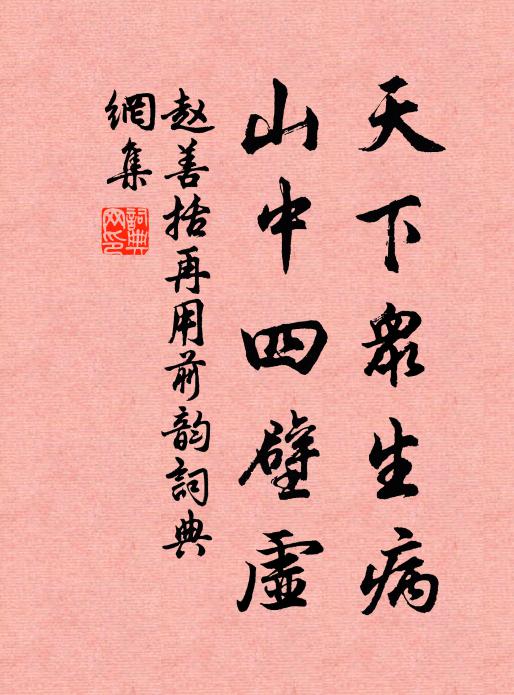 天下眾生病
山中四壁虛
赵善括再用前韵詞典
網集
詞典網印